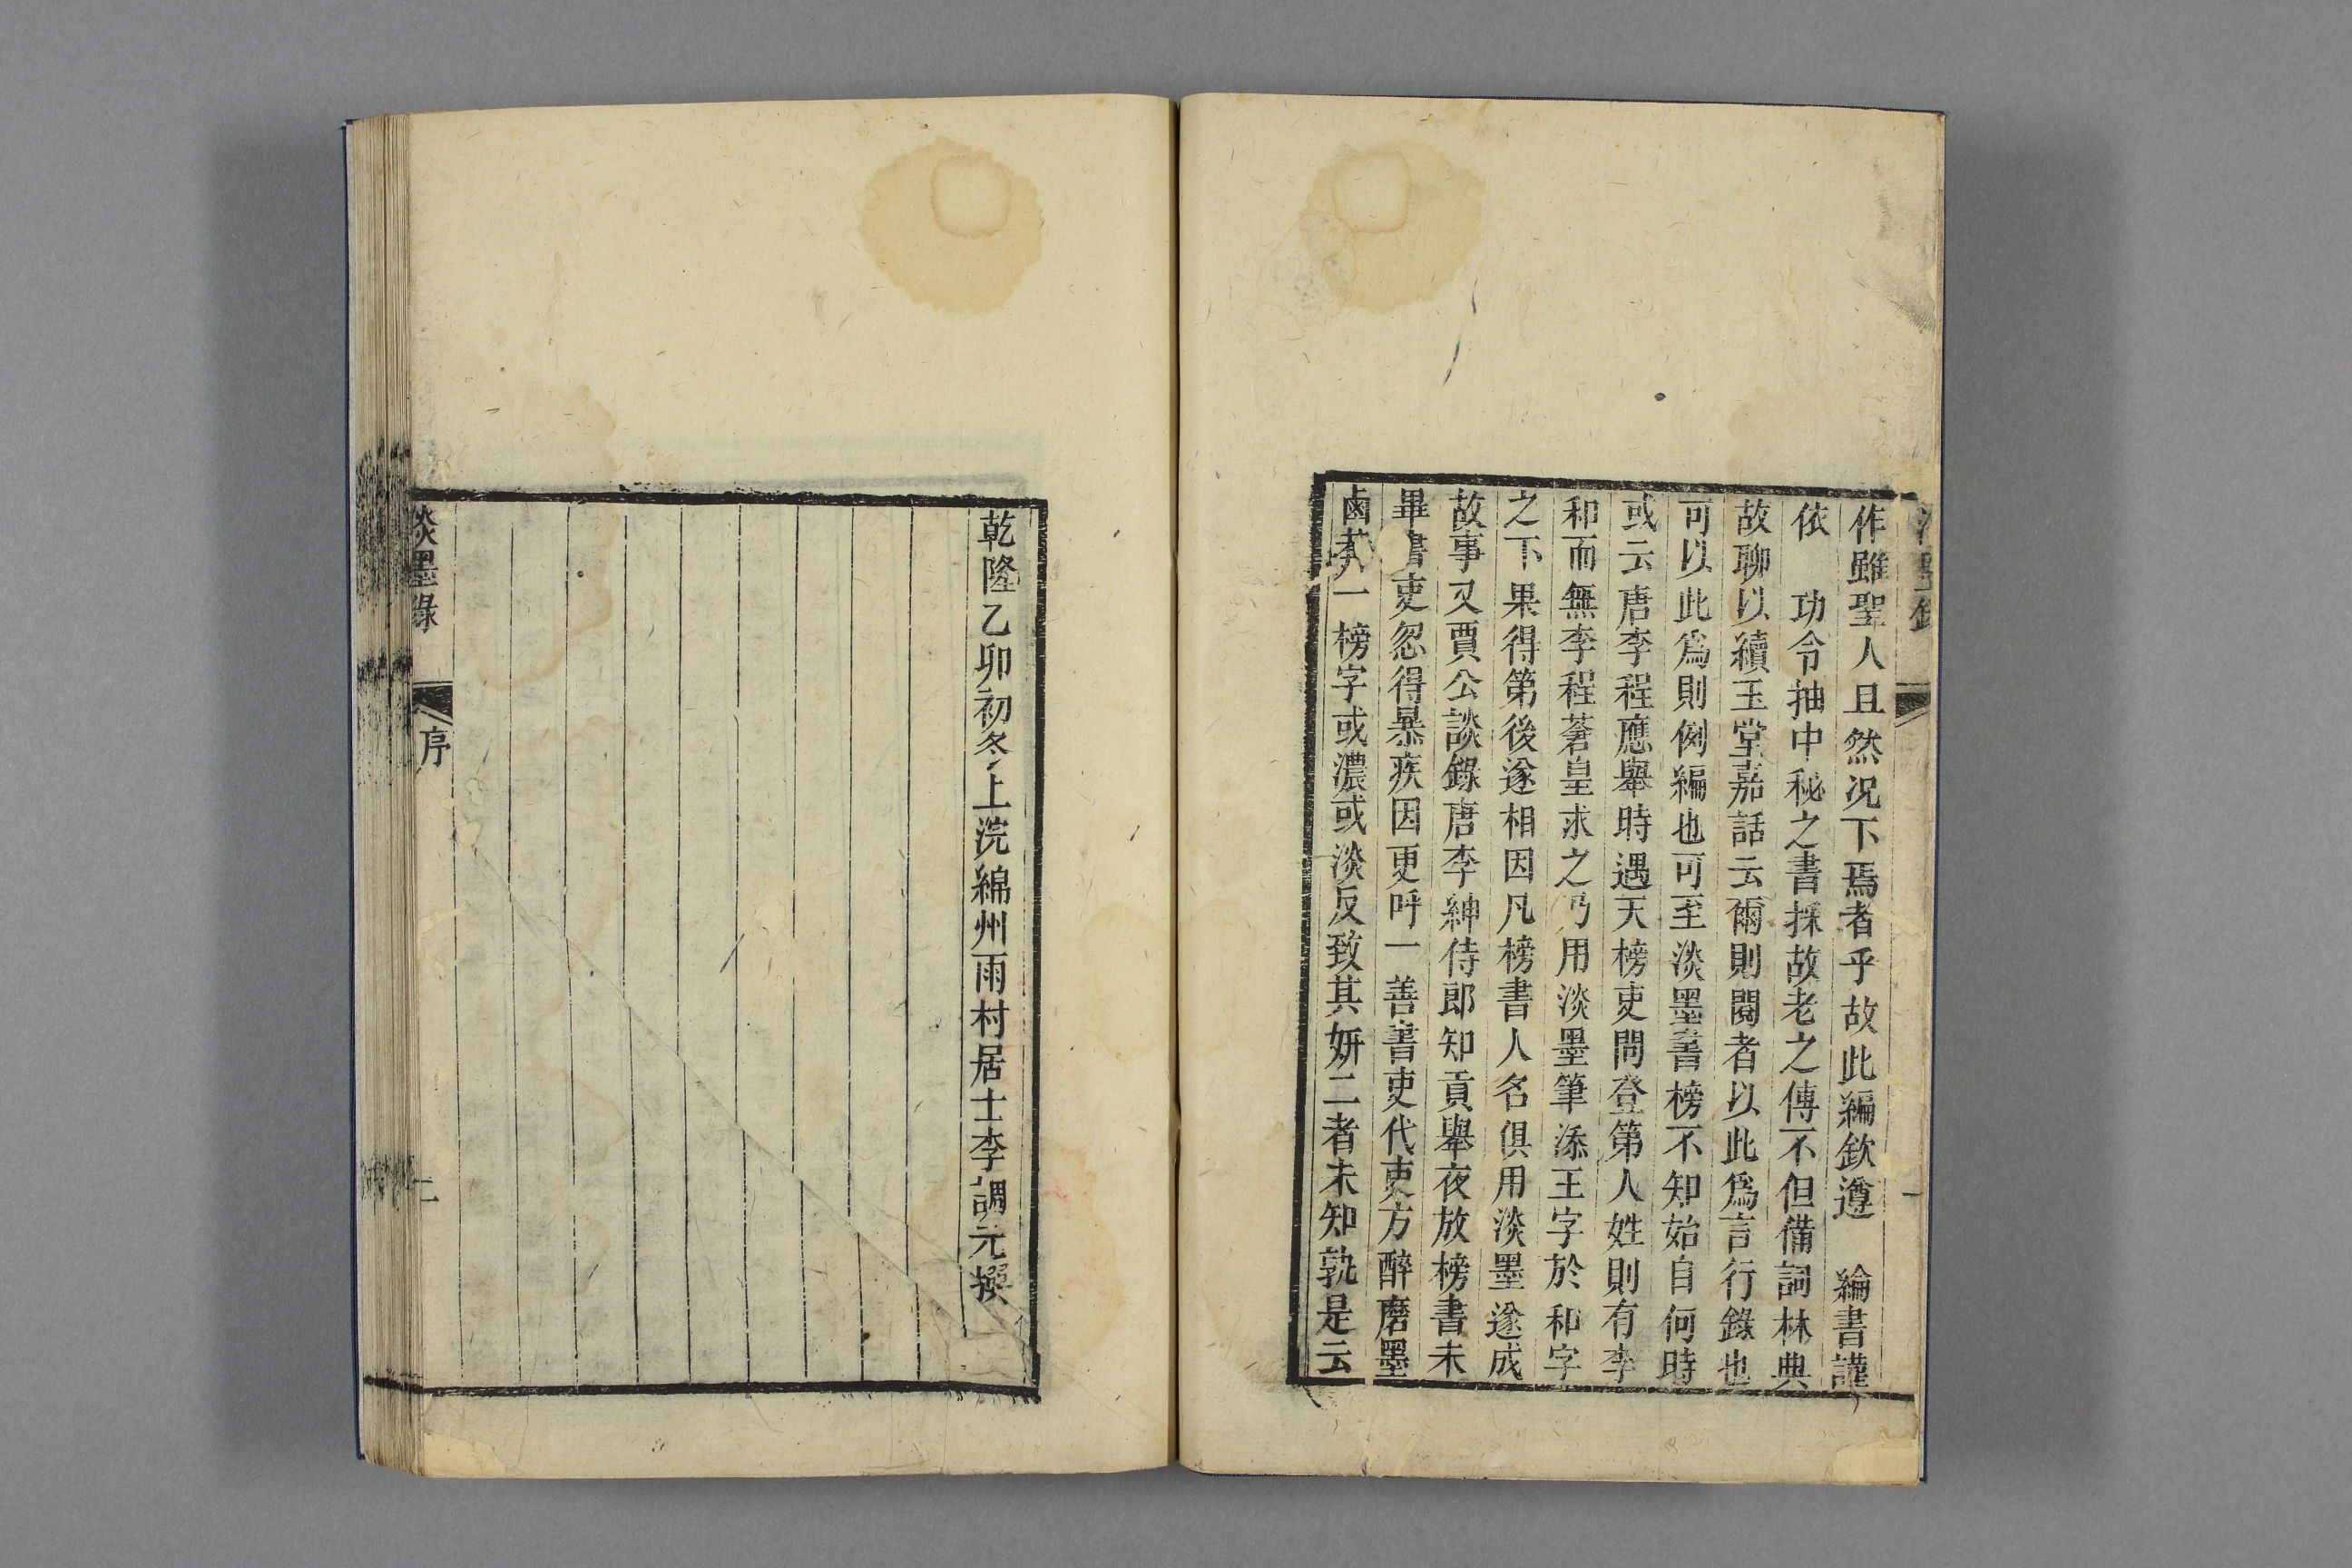 淡墨錄
一
作雖聖人且然况下焉者乎故此編欽遵　綸書謹
依　功令抽中秘之書採故老之傳不但備詞林典
故聊以續玉堂嘉話云爾則閱者以此爲言行錄也
可以此爲則例編也可至淡墨書榜不知始自何時
或云唐李程應舉時遇天榜吏問登第人姓則有李
和而無李程蒼皇求之乃用淡墨筆添王字於和字
之下果得第後遂相因凡榜書人名俱用淡墨遂成
故事又賈公談錄唐李紳侍郎知貢舉夜放榜書未
畢書吏忽得暴疾因更呼一善書吏代吏方醉磨墨
鹵莽一榜字或濃或淡反致其妍二者未知孰是云
乾隆乙卯初冬上浣綿州雨村居士李調元撰
淡墨錄
序
二